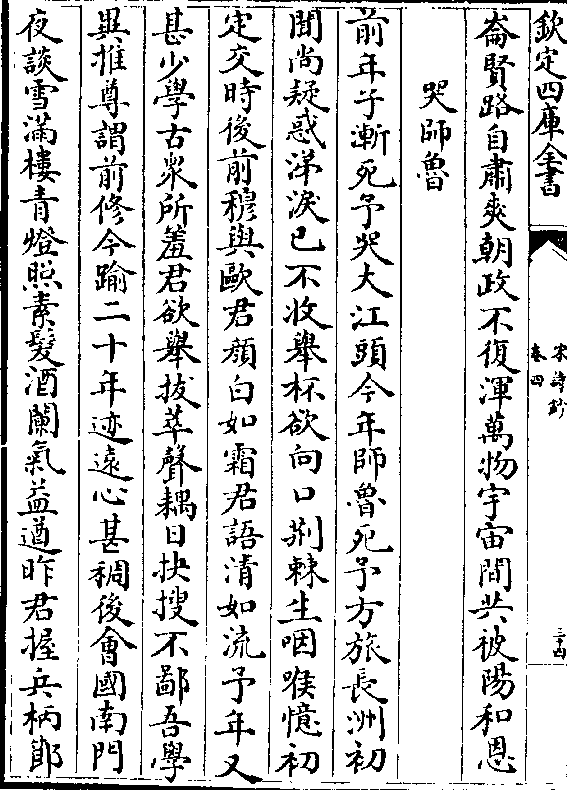 欽定四庫全書
宋詩鈔
卷四
三十四
崙賢路自肅爽朝政不復渾萬物宇宙間共被陽和恩
哭師魯
前年子漸死予哭大江頭今年師魯死予方旅長洲初
聞尚疑惑涕淚已不收舉杯欲向口荆棘生咽喉憶初
定交時後前穆與歐君顏白如霜君語清如流予年又
甚少學古衆所羞君欲舉拔萃聲耦日抉搜不鄙吾學
異推尊謂前修今踰二十年迹遠心甚稠後會國南門
夜談雪滿樓青燈照素髮酒闌氣益遒昨君握兵柄節